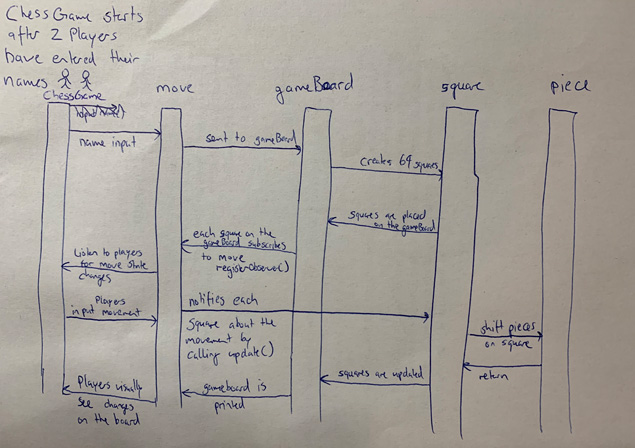 ChessGame starts
after 2 Players
have entered their
names
ChessGame
move
gameBoard
square
piece
name input
sent to gameBoard
creates 64 squares
squares are placed
on the gameBoard
each square on the
gameBoard subscribes
to move
registerObserver()
Listen to players
for move state
changes
Players
input movement
notifies each
square about the
movement by
calling update()
shift pieces
on square
return
squares are updated
gameboard is
printed
Players visually
see changes
on the board